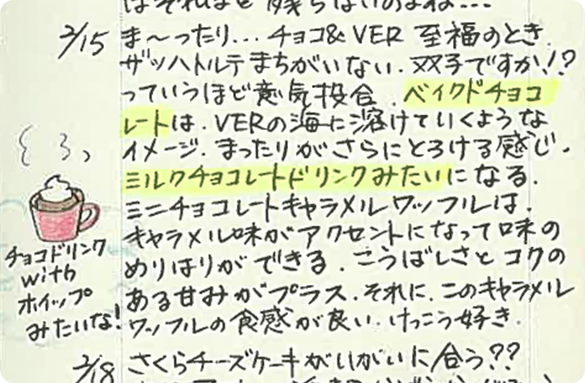 はそれほど残らないのよね...
2/15 ま〜ったり... チョコ& VER 至福のとき.
ザッハトルテまちがいない. 双子ですか!?
っていうほど意気投合. ベイクドチョコ
レートは. VERの海に溶けていくような
イメージ. まったりがさらにとろける感じ.
ミルクチョコレートドリンクみたいになる.
ミニチョコレートキャラメルワッフルは.
キャラメル味がアクセントになって味の
めりはりができる. こうばしさとコクの
ある甘みがプラス. それに. このキャラメル
ワッフルの食感が良い. けっこう好き.
チョコドリンク
with
ホイップ
みたいな!
2/18 さくらチーズケーキがいがいに合う??